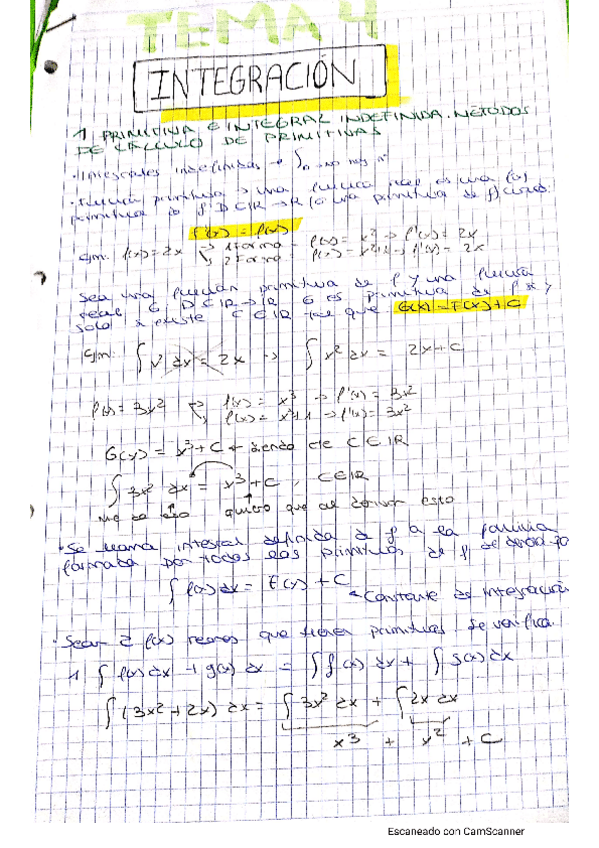 TEMA 4
INTEGRACIÓN
1 PRIMITIVA E INTEGRAL INDEFINIDA. MÉTODOS
DE CÁLCULO DE PRIMITIVAS
· Integrales indefinidas →
F'(x) = f(x)
Ejm: f(x) = 2x → 1 Forma - f(x) = x² → f'(x) = 2x
2 Forma - f(x) = x²+1 → f'(x) = 2x
Sea una función primitiva de f y una función
real G: D ⊂ IR → IR G es primitiva de f si y
solo si existe C ∈ IR tal que G(x) = F(x) + C
Ejm: ∫ x² dx = 2x → ∫ x² dx = 2x + C
f(x) = 3x² f(x) = x³ → f'(x) = 3x²
f(x) = x³+1 → f'(x) = 3x²
G(x) = x³ + C siendo C ∈ IR
∫ 3x² dx = x³ + C, C ∈ IR
me da esto quiero que al derivar esto
· Se llama integral definida de f a la familia
formada por todas las primitivas de f
∫ f(x) dx = F(x) + C
Constante de integración
· Sean 2 f(x) reales que tienen primitivas. Se verifica:
1) ∫ f(x) dx + g(x) dx = ∫ f(x) dx + ∫ g(x) dx
∫ (3x² + 2x) dx = ∫ 3x² dx + ∫ 2x dx
x³ + x² + C
Escaneado con CamScanner